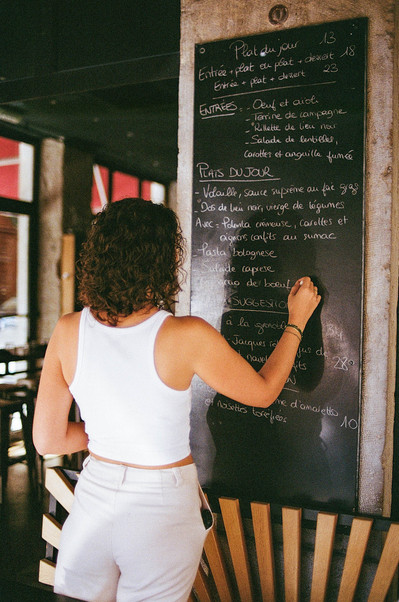 Plat du jour 13
Entrée + plat ou plat + dessert 18
Entrée + plat + dessert 23
ENTRÉES = - Oeuf et aïoli
- Terrine de campagne
- Rillette de lieu noir
- Salade de lentilles,
carottes et anguille fumée
PLATS DU JOUR
- Volaille, sauce suprême au
- Dos de lieu noir, vierge de légumes
Avec = Polenta crémeuse, carottes et
confits au sumac
- Pasta bolognese
- Salade caprese
de boeuf
SUGGESTION
à la
Jacques jus de
28
d'amaretto
et noisettes torréfiées 10